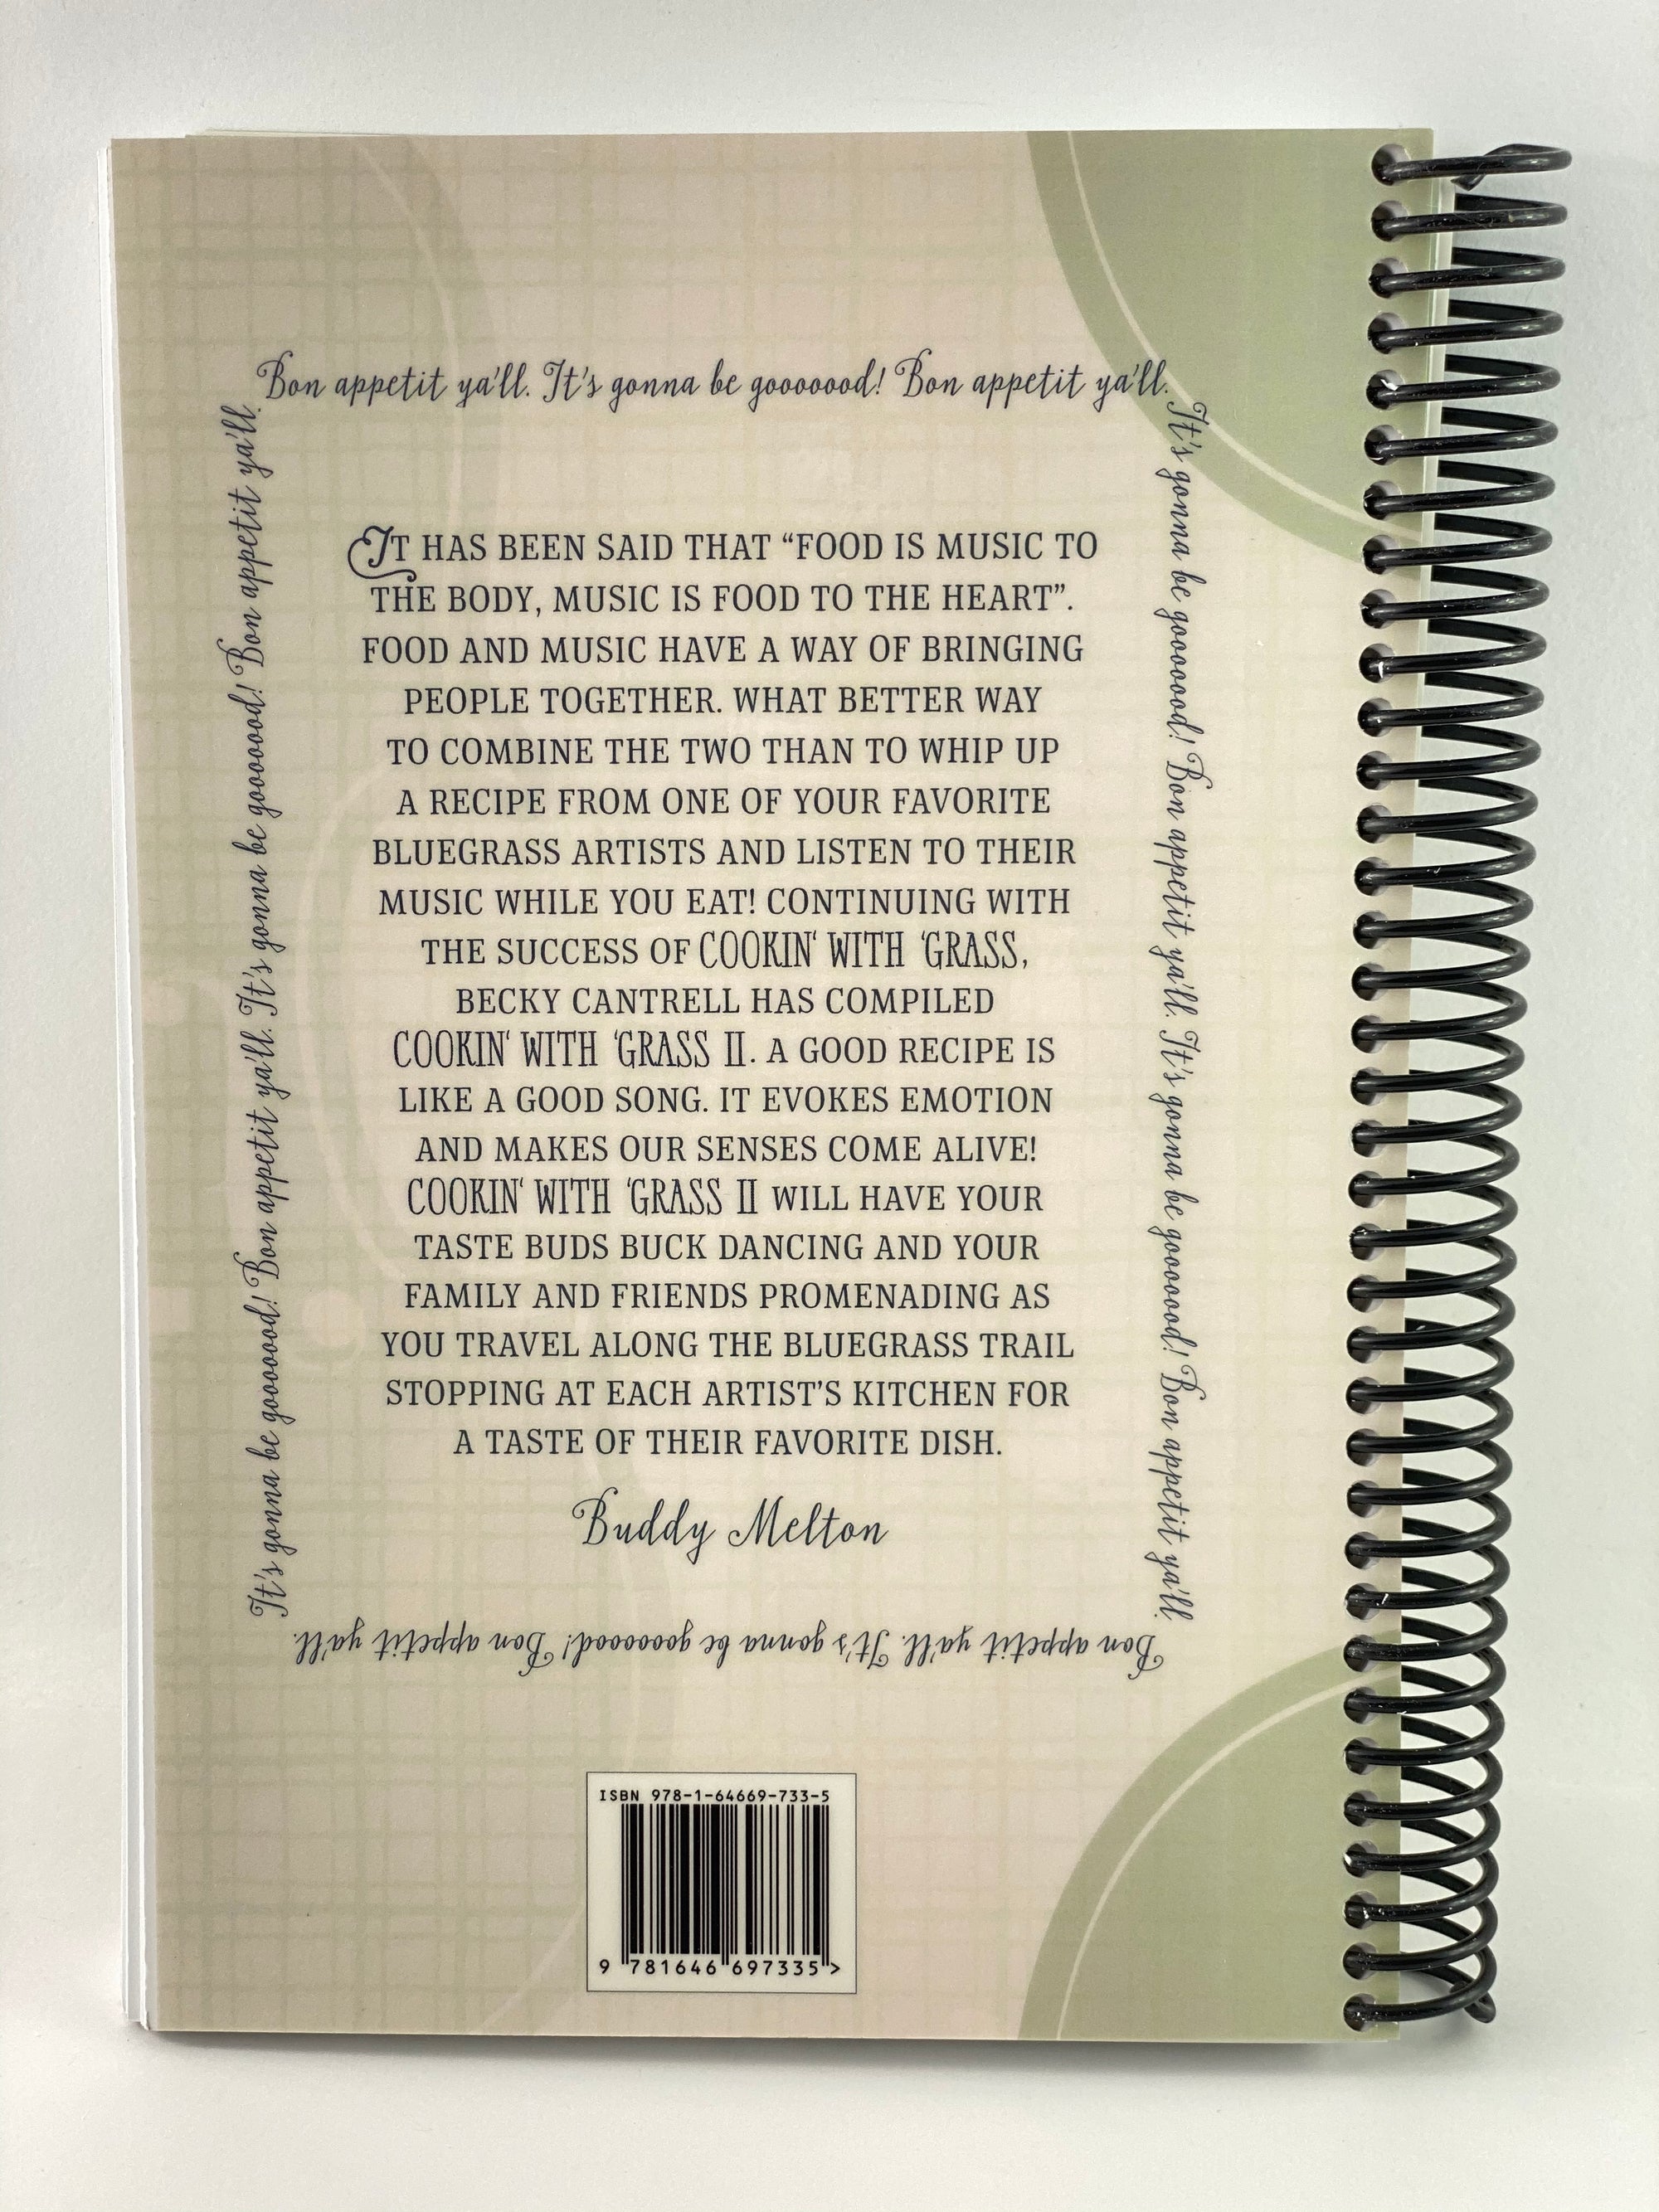 Bon appetit ya'll. It's gonna be gooooood! Bon appetit ya'll.
It's gonna be gooooood! Bon appetit ya'll. It's gonna be gooooood! Bon appetit ya'll.
Bon appetit ya'll. It's gonna be gooooood! Bon appetit ya'll.
It's gonna be gooooood! Bon appetit ya'll. It's gonna be gooooood! Bon appetit ya'll.
IT HAS BEEN SAID THAT “FOOD IS MUSIC TO
THE BODY, MUSIC IS FOOD TO THE HEART”.
FOOD AND MUSIC HAVE A WAY OF BRINGING
PEOPLE TOGETHER. WHAT BETTER WAY
TO COMBINE THE TWO THAN TO WHIP UP
A RECIPE FROM ONE OF YOUR FAVORITE
BLUEGRASS ARTISTS AND LISTEN TO THEIR
MUSIC WHILE YOU EAT! CONTINUING WITH
THE SUCCESS OF COOKIN‘ WITH ‘GRASS,
BECKY CANTRELL HAS COMPILED
COOKIN‘ WITH ‘GRASS II. A GOOD RECIPE IS
LIKE A GOOD SONG. IT EVOKES EMOTION
AND MAKES OUR SENSES COME ALIVE!
COOKIN‘ WITH ‘GRASS II WILL HAVE YOUR
TASTE BUDS BUCK DANCING AND YOUR
FAMILY AND FRIENDS PROMENADING AS
YOU TRAVEL ALONG THE BLUEGRASS TRAIL
STOPPING AT EACH ARTIST’S KITCHEN FOR
A TASTE OF THEIR FAVORITE DISH.
Buddy Melton
ISBN 978-1-64669-733-5
9 781646 697335 >